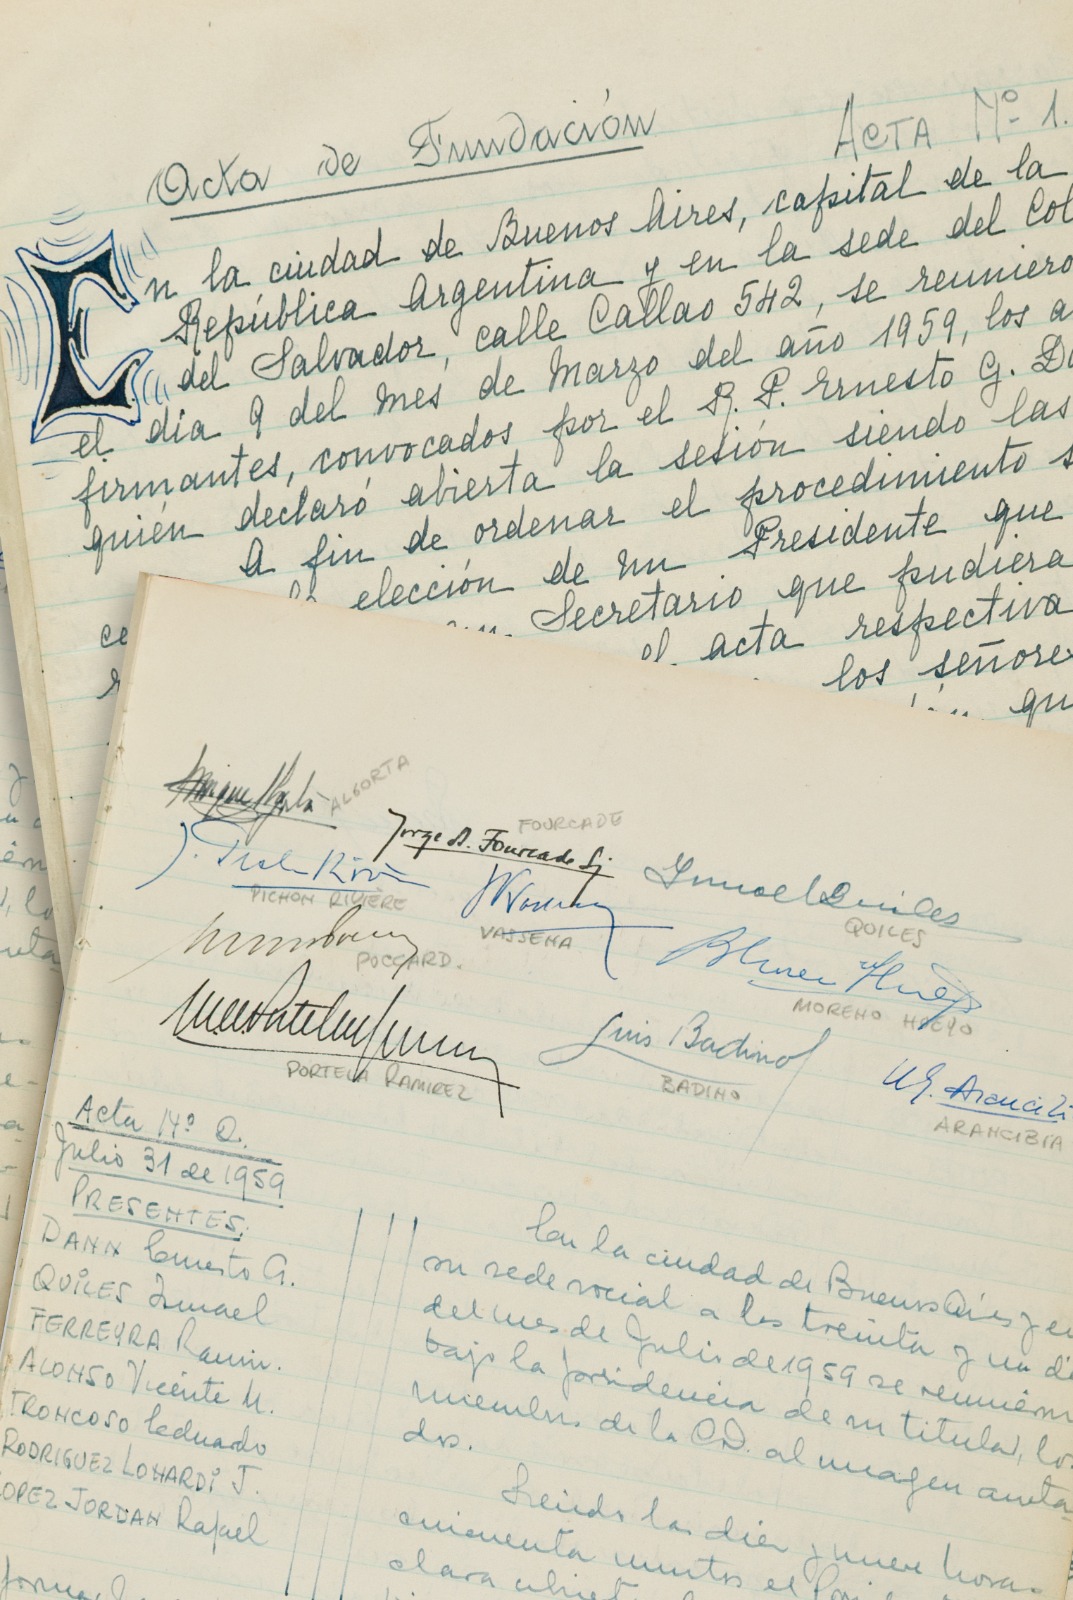 Acta de Fundación
ACTA Nº 1.
En la ciudad de Buenos Aires, capital de la
República Argentina y en la sede del Col
del Salvador, calle Callao 542, se reuniero
el día 9 del mes de Marzo del año 1959, los a
firmantes, convocados por el R. P. Ernesto G. Da
quién declaró abierta la sesión siendo las
A fin de ordenar el procedimiento s
elección de un Presidente que
ce Secretario que pudiera
el acta respectiva
los señores
qu
ALGORTA
FOURCADE
Jorge A. Fourcade Sj.
PICHON RIVIÈRE
VASSENA
Ismael Quiles
QUILES
POCCARD.
MORENO HUEYO
PORTELA RAMIREZ
Luis Badino
BADINO
ARANCIBIA
Acta Nº 2.
Julio 31 de 1959
PRESENTES:
DANN Ernesto G.
QUILES Ismael
FERREYRA Ramón.
ALONSO Vicente M.
TRONCOSO Eduardo
RODRIGUEZ LONARDI J.
LOPEZ JORDAN Rafael
En la ciudad de Buenos Aires y en
su sede social a los treinta y un dí
del mes de Julio de 1959 se reunieron
bajo la presidencia de su titular, los
miembros de la C.D. al margen anota-
dos.
Siendo las diez y nueve horas
cincuenta minutos el
clara